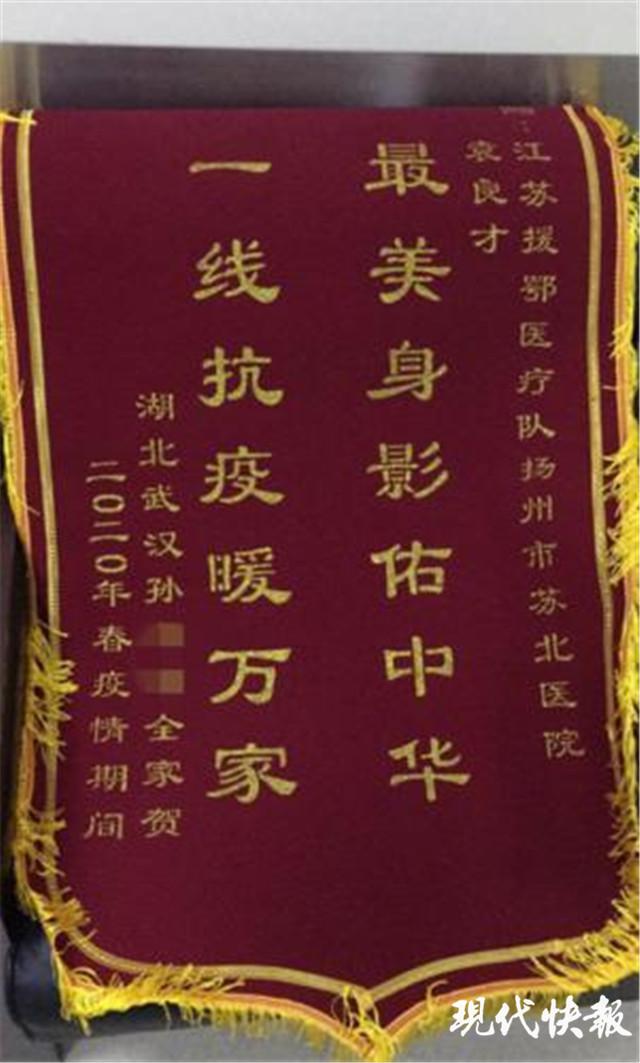 江苏援鄂医疗队扬州市苏北医院
袁良才
最美身影佑中华
一线抗疫暖万家
湖北武汉孙
全家贺
二〇二〇年春疫情期间
现代快報